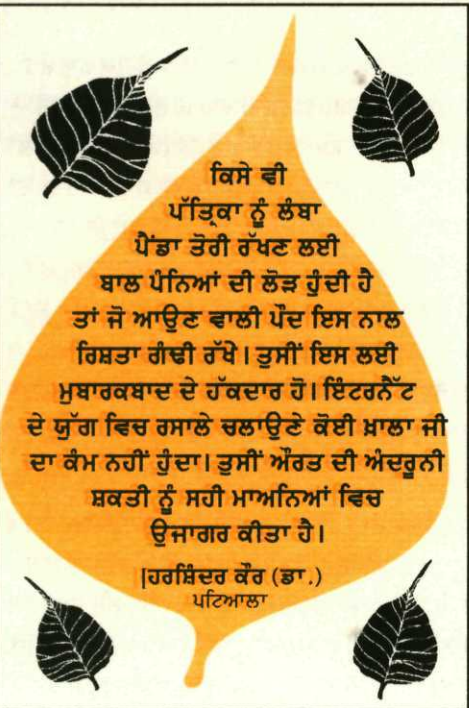 ਕਿਸੇ ਵੀ
ਪੱਤ੍ਰਿਕਾ ਨੂੰ ਲੰਬਾ
ਪੈਂਡਾ ਤੋਰੀ ਰੱਖਣ ਲਈ
ਬਾਲ ਪੰਨਿਆਂ ਦੀ ਲੋੜ ਹੁੰਦੀ ਹੈ
ਤਾਂ ਜੋ ਆਉਣ ਵਾਲੀ ਪੌਦ ਇਸ ਨਾਲ
ਰਿਸ਼ਤਾ ਗੰਢੀ ਰੱਖੇ। ਤੁਸੀਂ ਇਸ ਲਈ
ਮੁਬਾਰਕਬਾਦ ਦੇ ਹੱਕਦਾਰ ਹੋ। ਇੰਟਰਨੈੱਟ
ਦੇ ਯੁੱਗ ਵਿਚ ਰਸਾਲੇ ਚਲਾਉਣੇ ਕੋਈ ਖ਼ਾਲਾ ਜੀ
ਦਾ ਕੰਮ ਨਹੀਂ ਹੁੰਦਾ। ਤੁਸੀਂ ਔਰਤ ਦੀ ਅੰਦਰੂਨੀ
ਸ਼ਕਤੀ ਨੂੰ ਸਹੀ ਮਾਅਨਿਆਂ ਵਿਚ
ਉਜਾਗਰ ਕੀਤਾ ਹੈ।
|ਹਰਸ਼ਿੰਦਰ ਕੌਰ (ਡਾ.)
ਪਟਿਆਲਾ